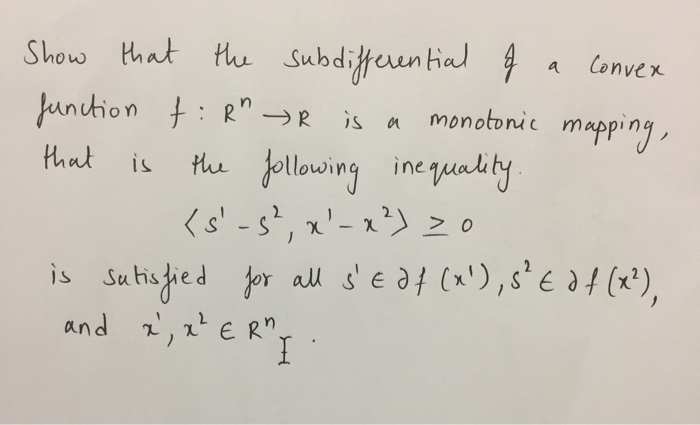 Show that the subdifferential of a convex
function f : Rⁿ → R is a monotonic mapping,
that is the following inequality.
⟨s¹ - s², x¹ - x²⟩ ≥ 0
is satisfied for all s¹ ∈ ∂f (x¹), s² ∈ ∂f (x²),
and x¹, x² ∈ Rⁿ.